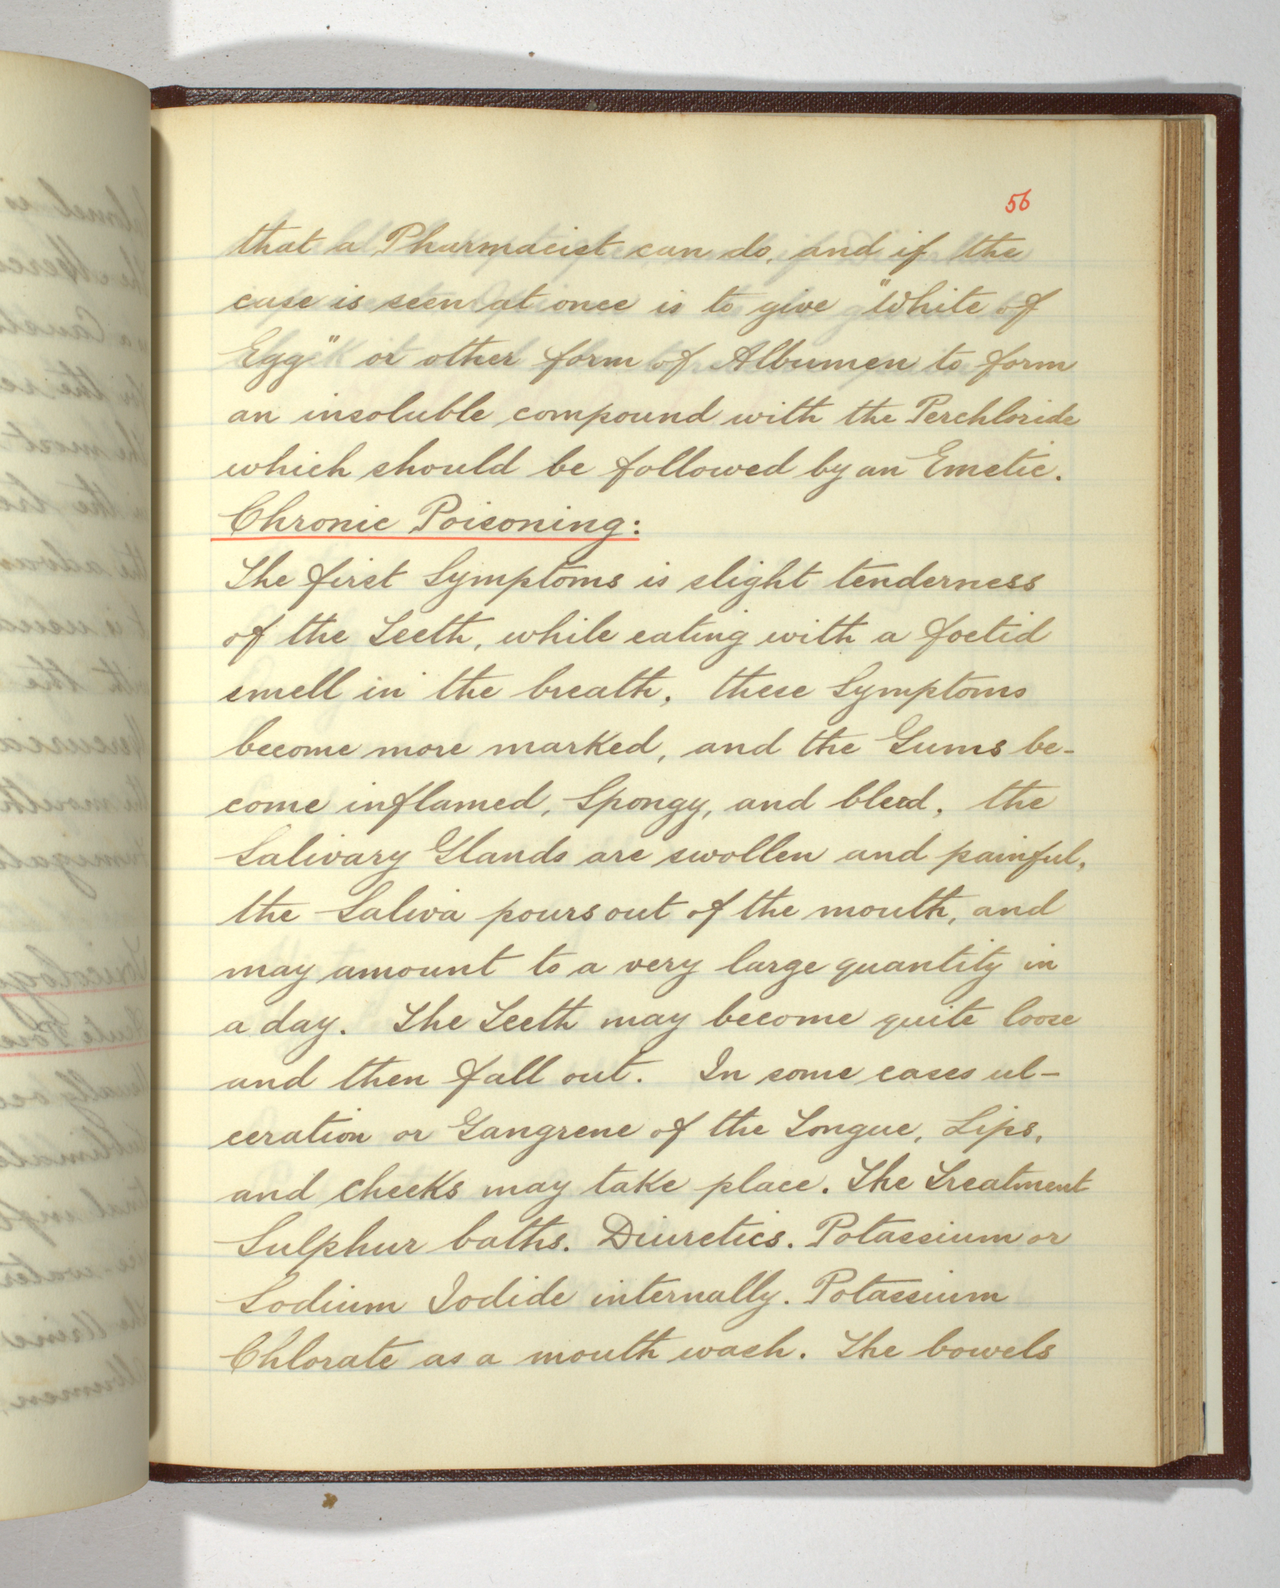 56
that a Pharmacist can do, and if the
case is seen at once is to give "White of
Egg" or other form of Albumen to form
an insoluble compound with the Perchloride
which should be followed by an Emetic.
Chronic Poisoning:
The first Symptoms is slight tenderness
of the Teeth, while eating with a foetid
smell in the breath, these Symptoms
become more marked, and the Gums be-
come inflamed, Spongy, and bleed, the
Salivary Glands are swollen and painful,
the Saliva pours out of the mouth, and
may amount to a very large quantity in
a day. The Teeth may become quite loose
and then fall out. In some cases ul-
ceration or Gangrene of the Tongue, Lips,
and cheeks may take place. The Treatment
Sulphur baths. Diuretics. Potassium or
Sodium Iodide internally. Potassium
Chlorate as a mouth wash. The bowels